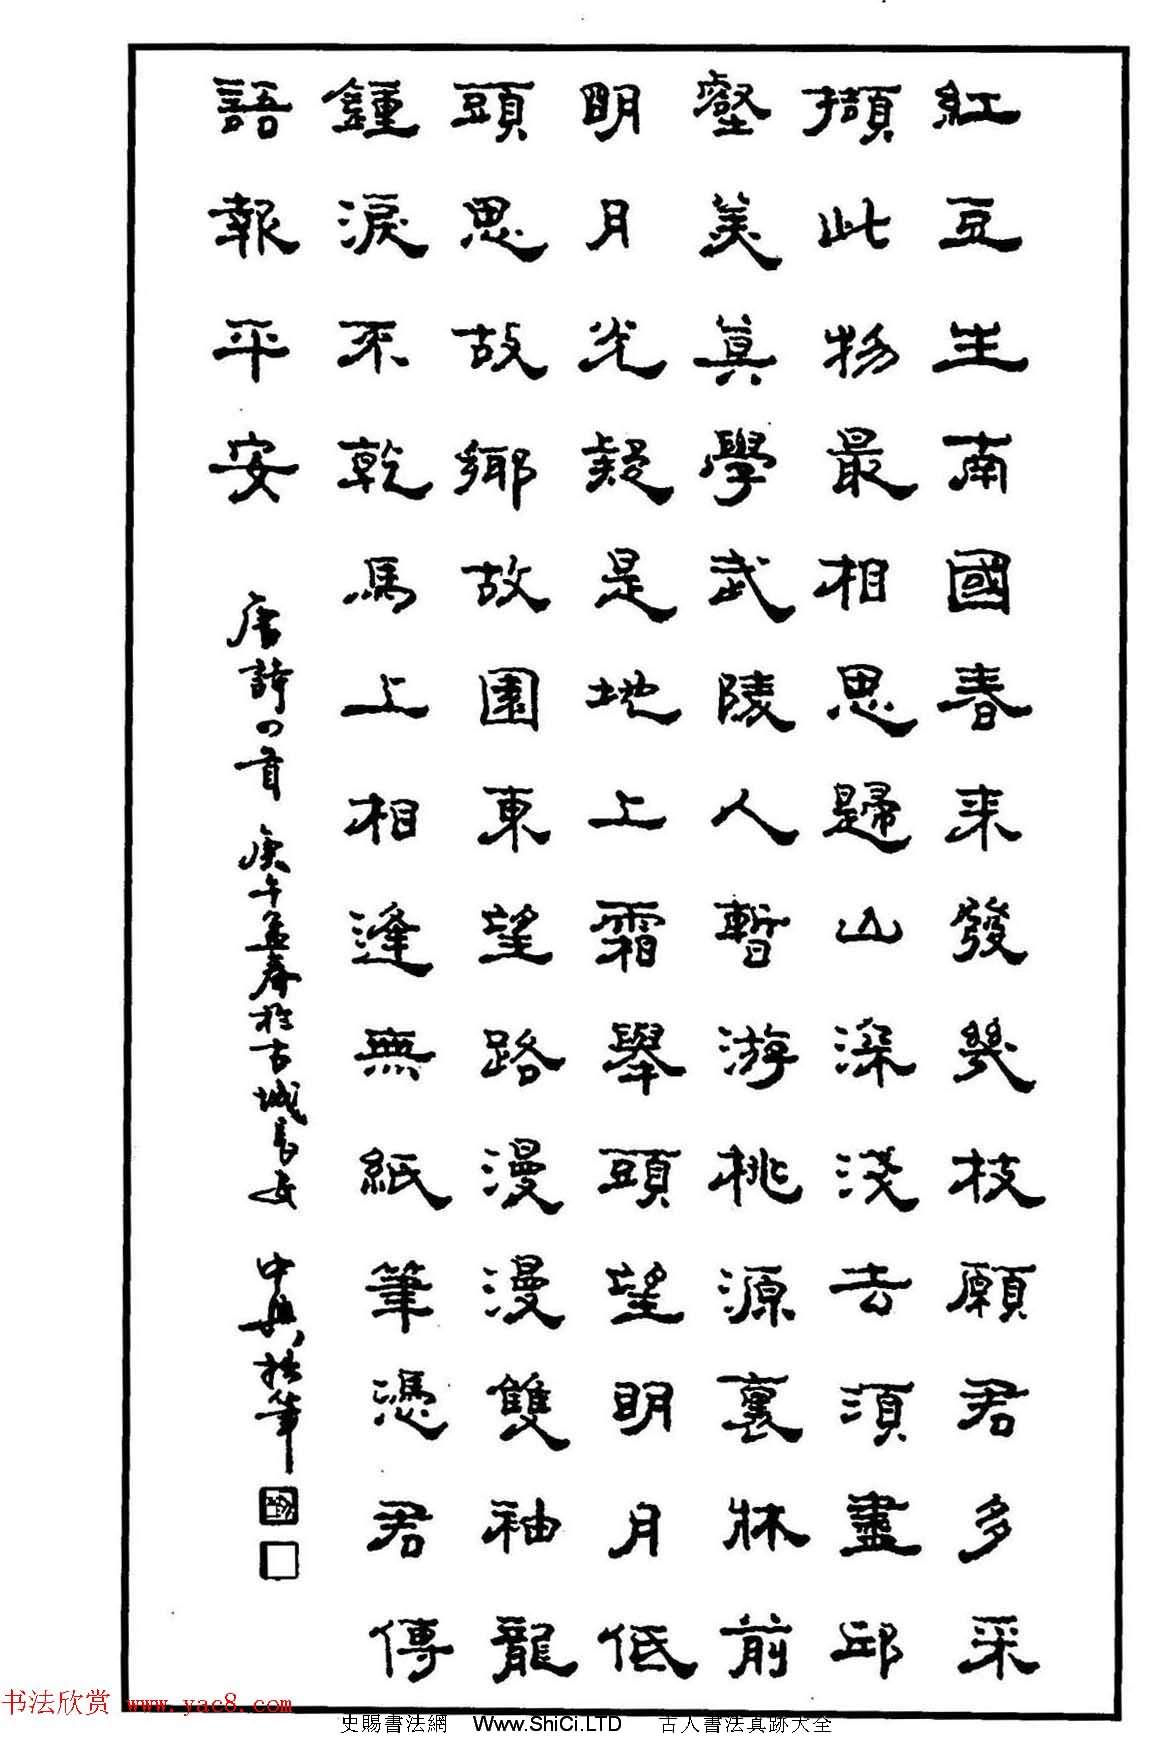 紅豆生南國春来發幾枝願君多采
擷此物最相思歸山深淺去須盡邱
壑美莫學武陵人暫游桃源裏牀前
明月光疑是地上霜舉頭望明月低
頭思故鄉故園東望路漫漫雙袖龍
鍾淚不乾馬上相逢無紙筆憑君傳
語報平安 唐詩四首 庚午孟春於古城長安 中興拙筆
书法欣赏 www.yac8.com
史賜書法網 Www.ShiCi.LTD 古人書法真跡大全